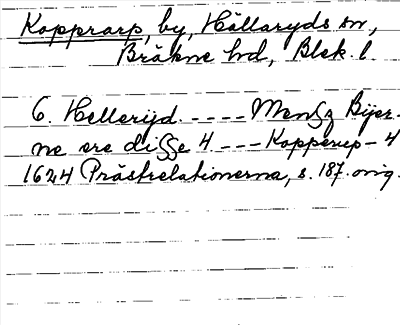 Kopprarp, by, Hällaryds sn,
Bräkne hd, Blek. l.
6. Hellerijd. ---- Mens Bijer-
ne ere disse 4 --- Kopperup - 4
1624 Prästrelationerna, s. 187. orig.